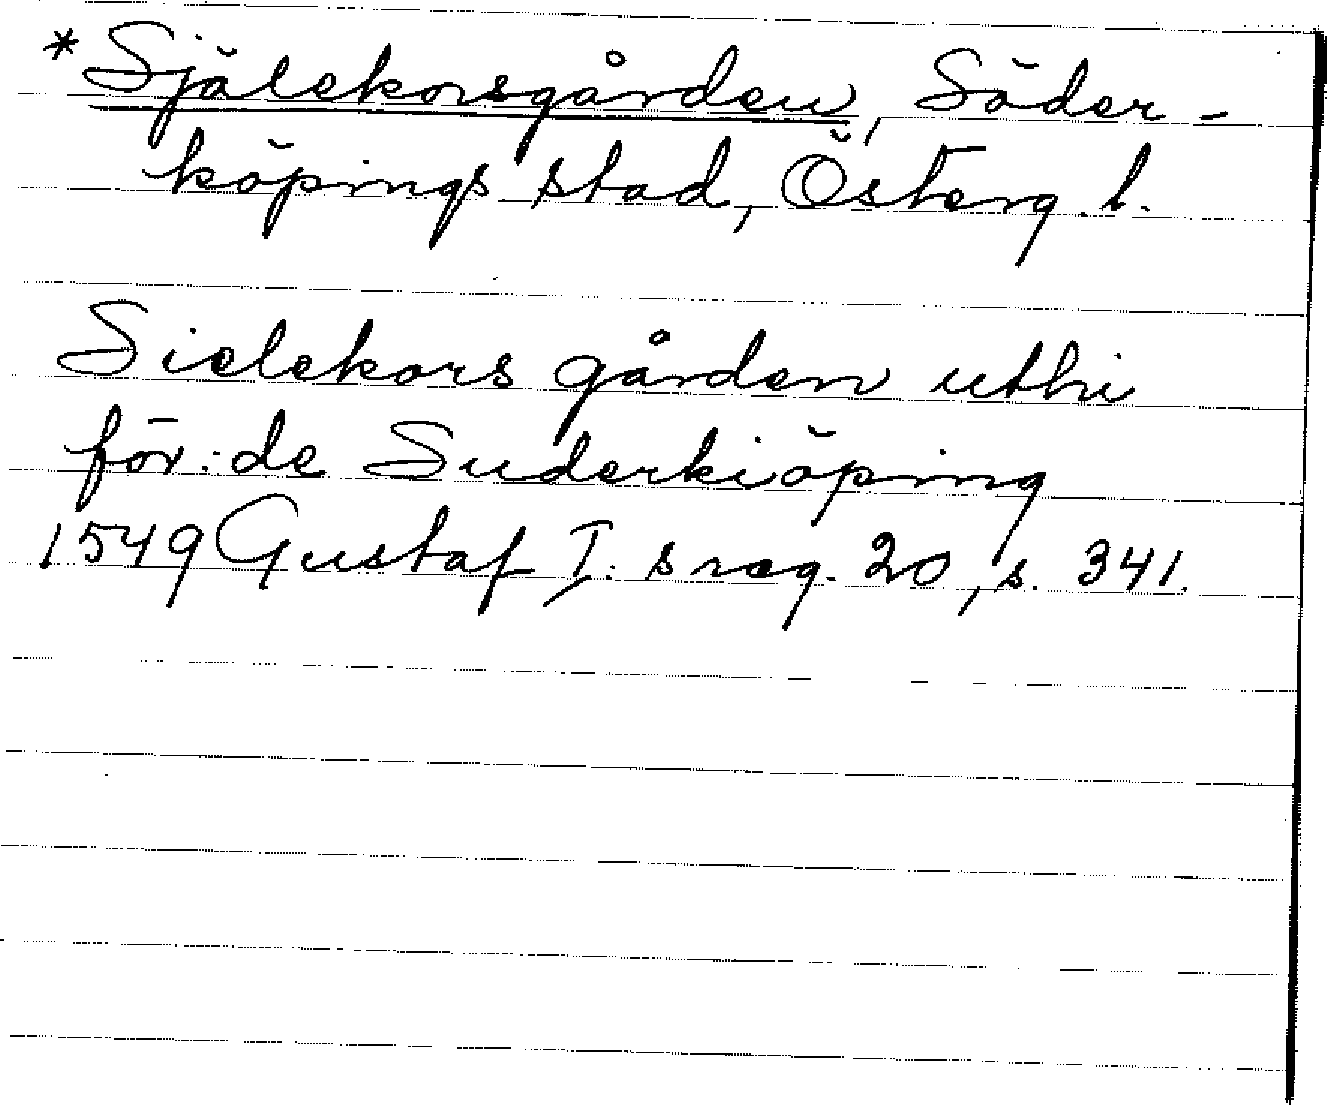 *Själekorsgården, Söder-
köpings stad, Österg. l.
Sielekors gården uthi
för:de Suderkiöping
1549 Gustaf I:s reg. 20, s. 341.